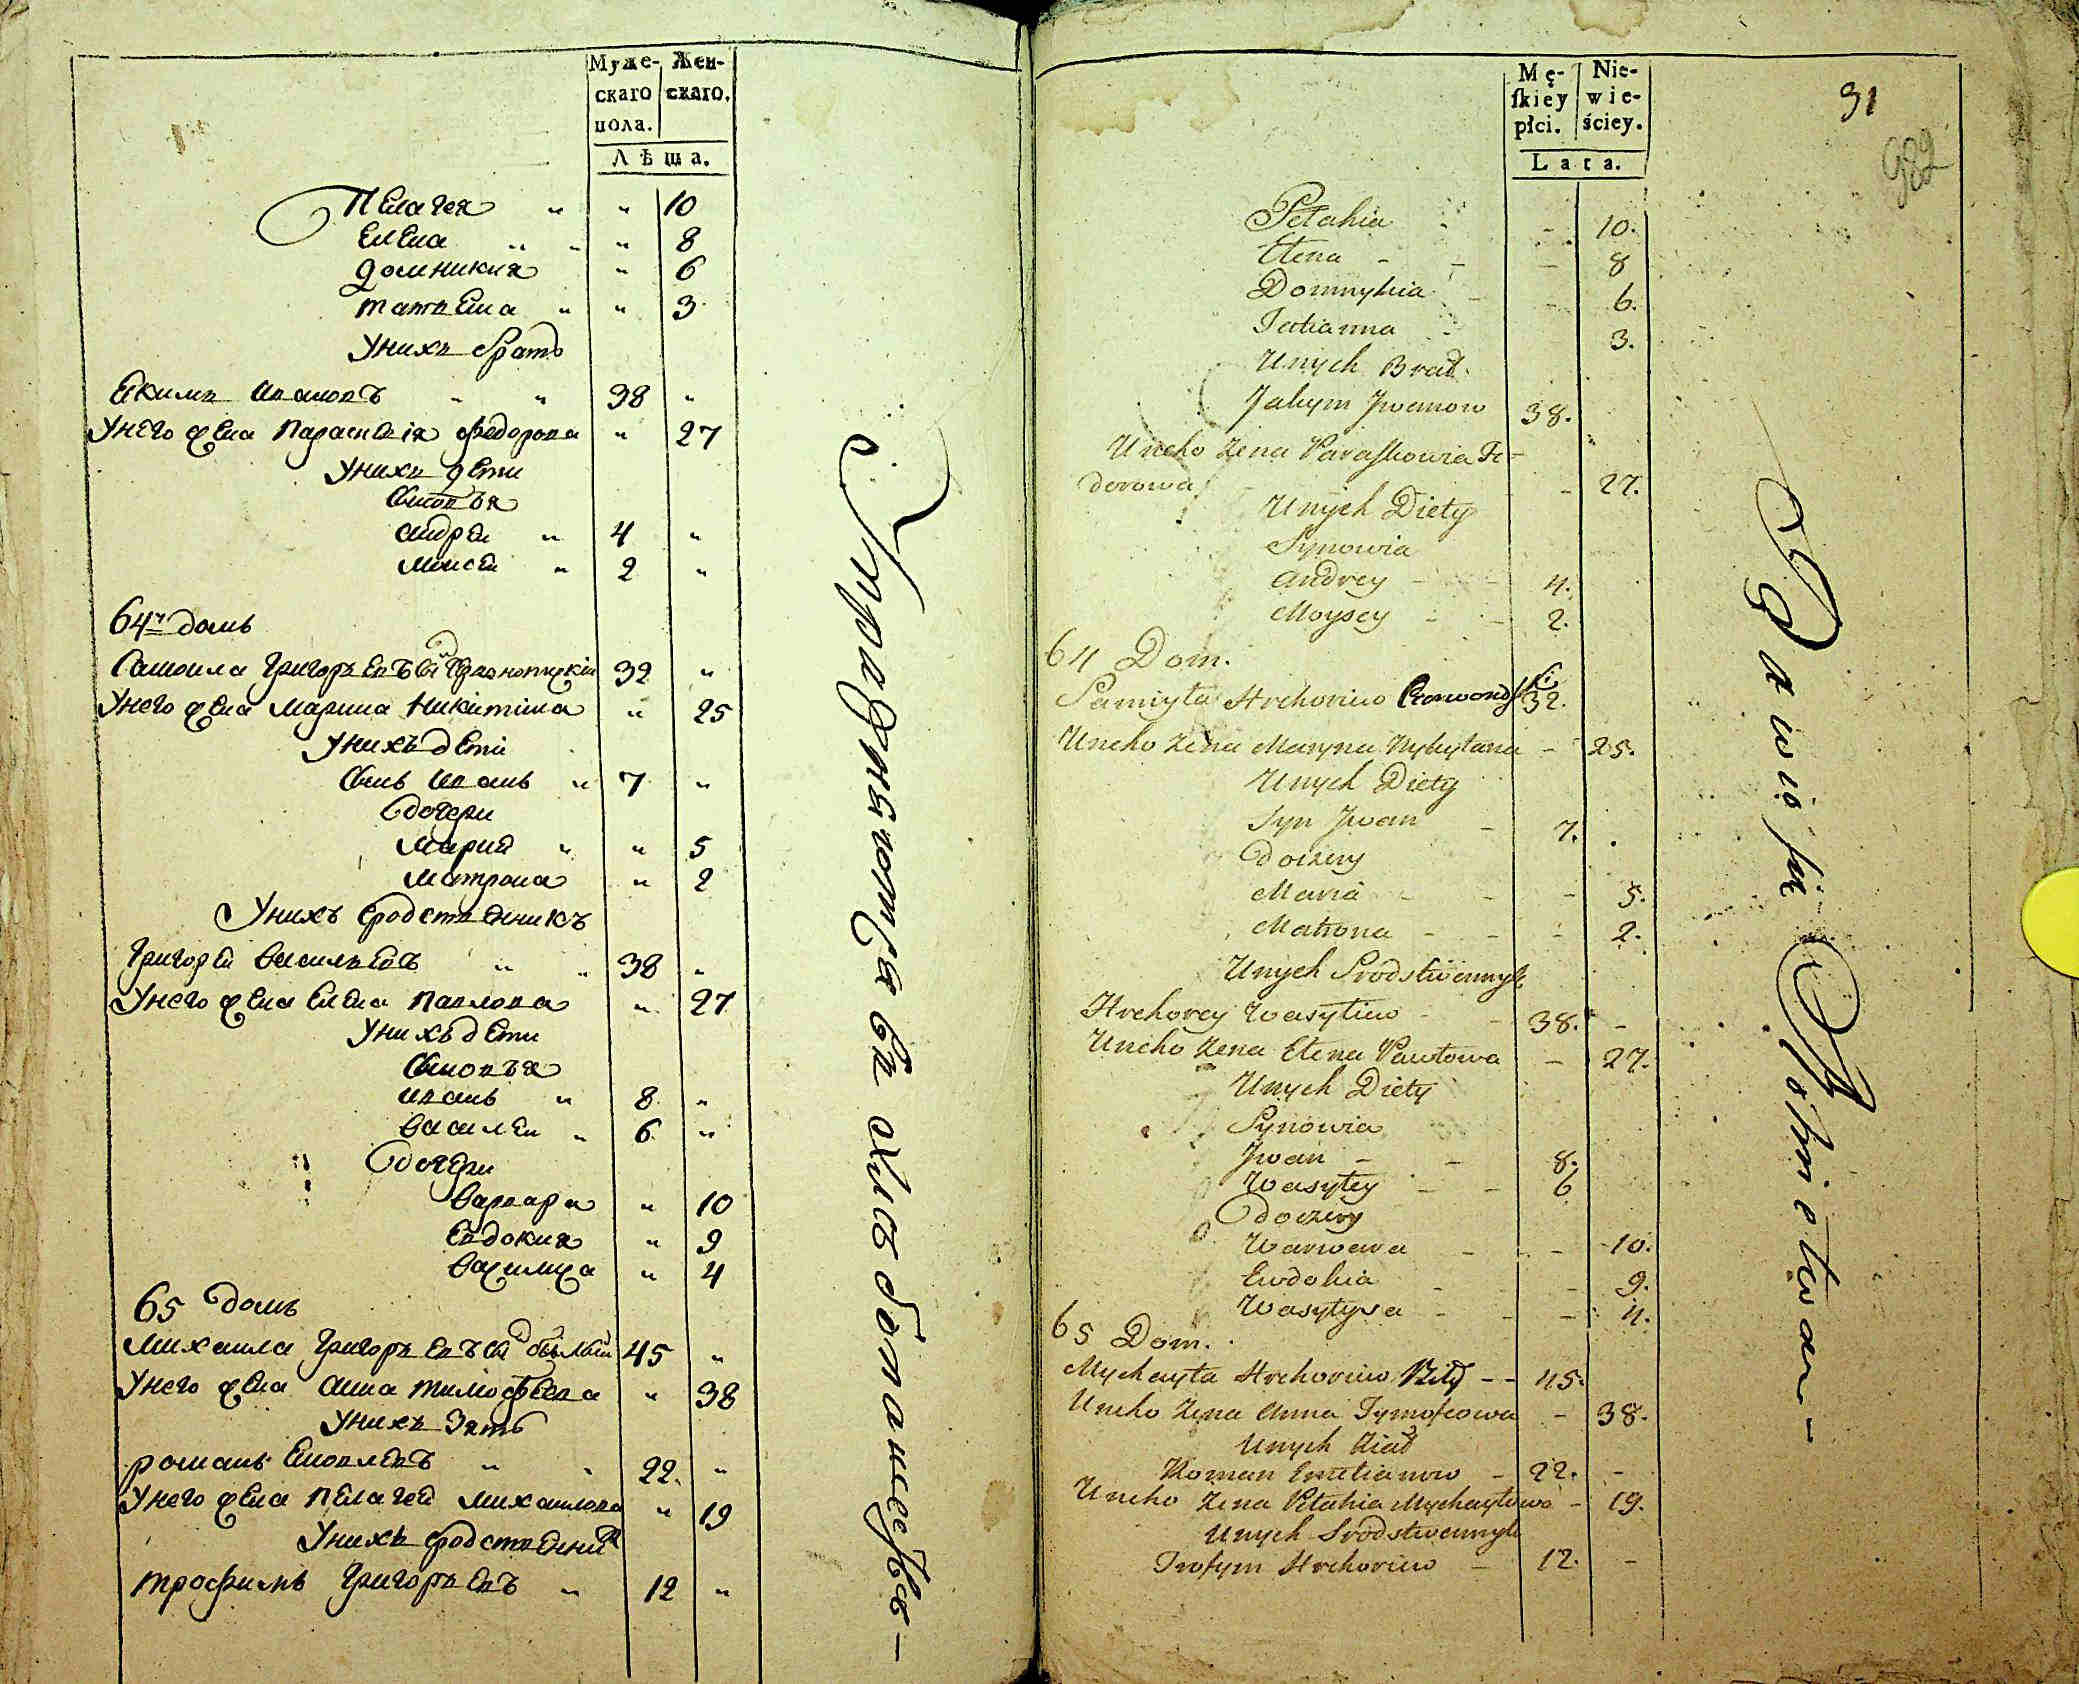 Муже- Жен-
скаго скаго.
пола.
Лѣта.
Пелагея " " 10
Елена " " 8
Домникия " 6
татьяна " " 3
Унихъ братъ
Екимъ Ивановъ " " 38 "
Унего жена Параскевія Федорова " 27
Унихъ дети
Сыновья
Андрей " 4 "
Моисей " 2 "
64й домъ
Самоила Григорьевъ 32 "
Унего жена Марина Никитина " 25
Унихъ дети
Сынъ Иванъ " 7 "
дочери
Мария " " 5
Матрона " 2
Унихъ сродственникъ
Григорей Васильевъ " " 38 "
Унего жена Елена Павлова " 27
Унихъ дети
Сыновья
Иванъ " 8 "
Василей " 6 "
дочери
Варвара " 10
Евдокия " 9
Василиса " 4
65 домъ
Михаила Григорьевъ Белый 45 "
Унего жена Анна тимофеева " 38
Унихъ Зять
романъ Емельяновъ " 22. "
Унего жена Пелагея Михайлова " 19
Унихъ сродственникъ
трофимъ Григорьевъ " 12 "
Mę- Nie-
skiey wie-
płci. ściey.
Lata.
31
982
Pełahia - - 10.
Ełena - - - 8
Domnykia - - 6.
Tatianna - 3.
Unych Brat.
Jakym Jwanow 38.
Uneho Zena Paraskowia Fe-
dorowa - 27.
Unych Diety
Synowia
Andrey - - 4.
Moysey - - 2.
64 Dom.
Samiyła Hrehoriew 32.
Uneho Zena Maryna Nykytana - 25.
Unych Diety
Syn Jwan - 7.
Doczery
Maria - - - 5.
Matrona - - - 2.
Unych Srodstwennyk
Hrehorey Wasyliew - - 38. -
Uneho Zena Ełena Pawłowa - 27.
Unych Diety
Synowia
Jwan - - 8.
Wasyley - - 6
Doczery
Warwara - - - 10.
Ewdokia - - 9.
Wasyłysa - - - 4.
65 Dom.
Mychayła Hrehoriew Biły - - 45.
Uneho Zena Anna Tymofeowa - 38.
Unych Ziat
Roman Emelianow - 22. -
Uneho Zena Pełahia Mychayłowa - 19.
Unych Srodstwennyk
Trofym Hrehoriew - 12. -